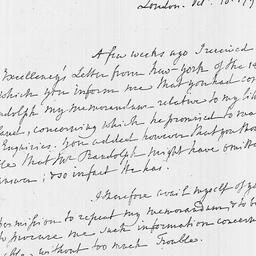 London. Oct. 10. 179
A few weeks ago I received
Excellency's Letter from New York of the 14
which you inform me that you had co
andolph my memorandum relative to my lib
land, concerning which he promised to ma
Enquiries. You added however that you thou
ble that Mr Randolph might have omitte
answer; & so in fact He has.
I therefore avail myself of yo
permission to repeat my memorandum, & to b
to procure me such information concern
without too much Trouble.